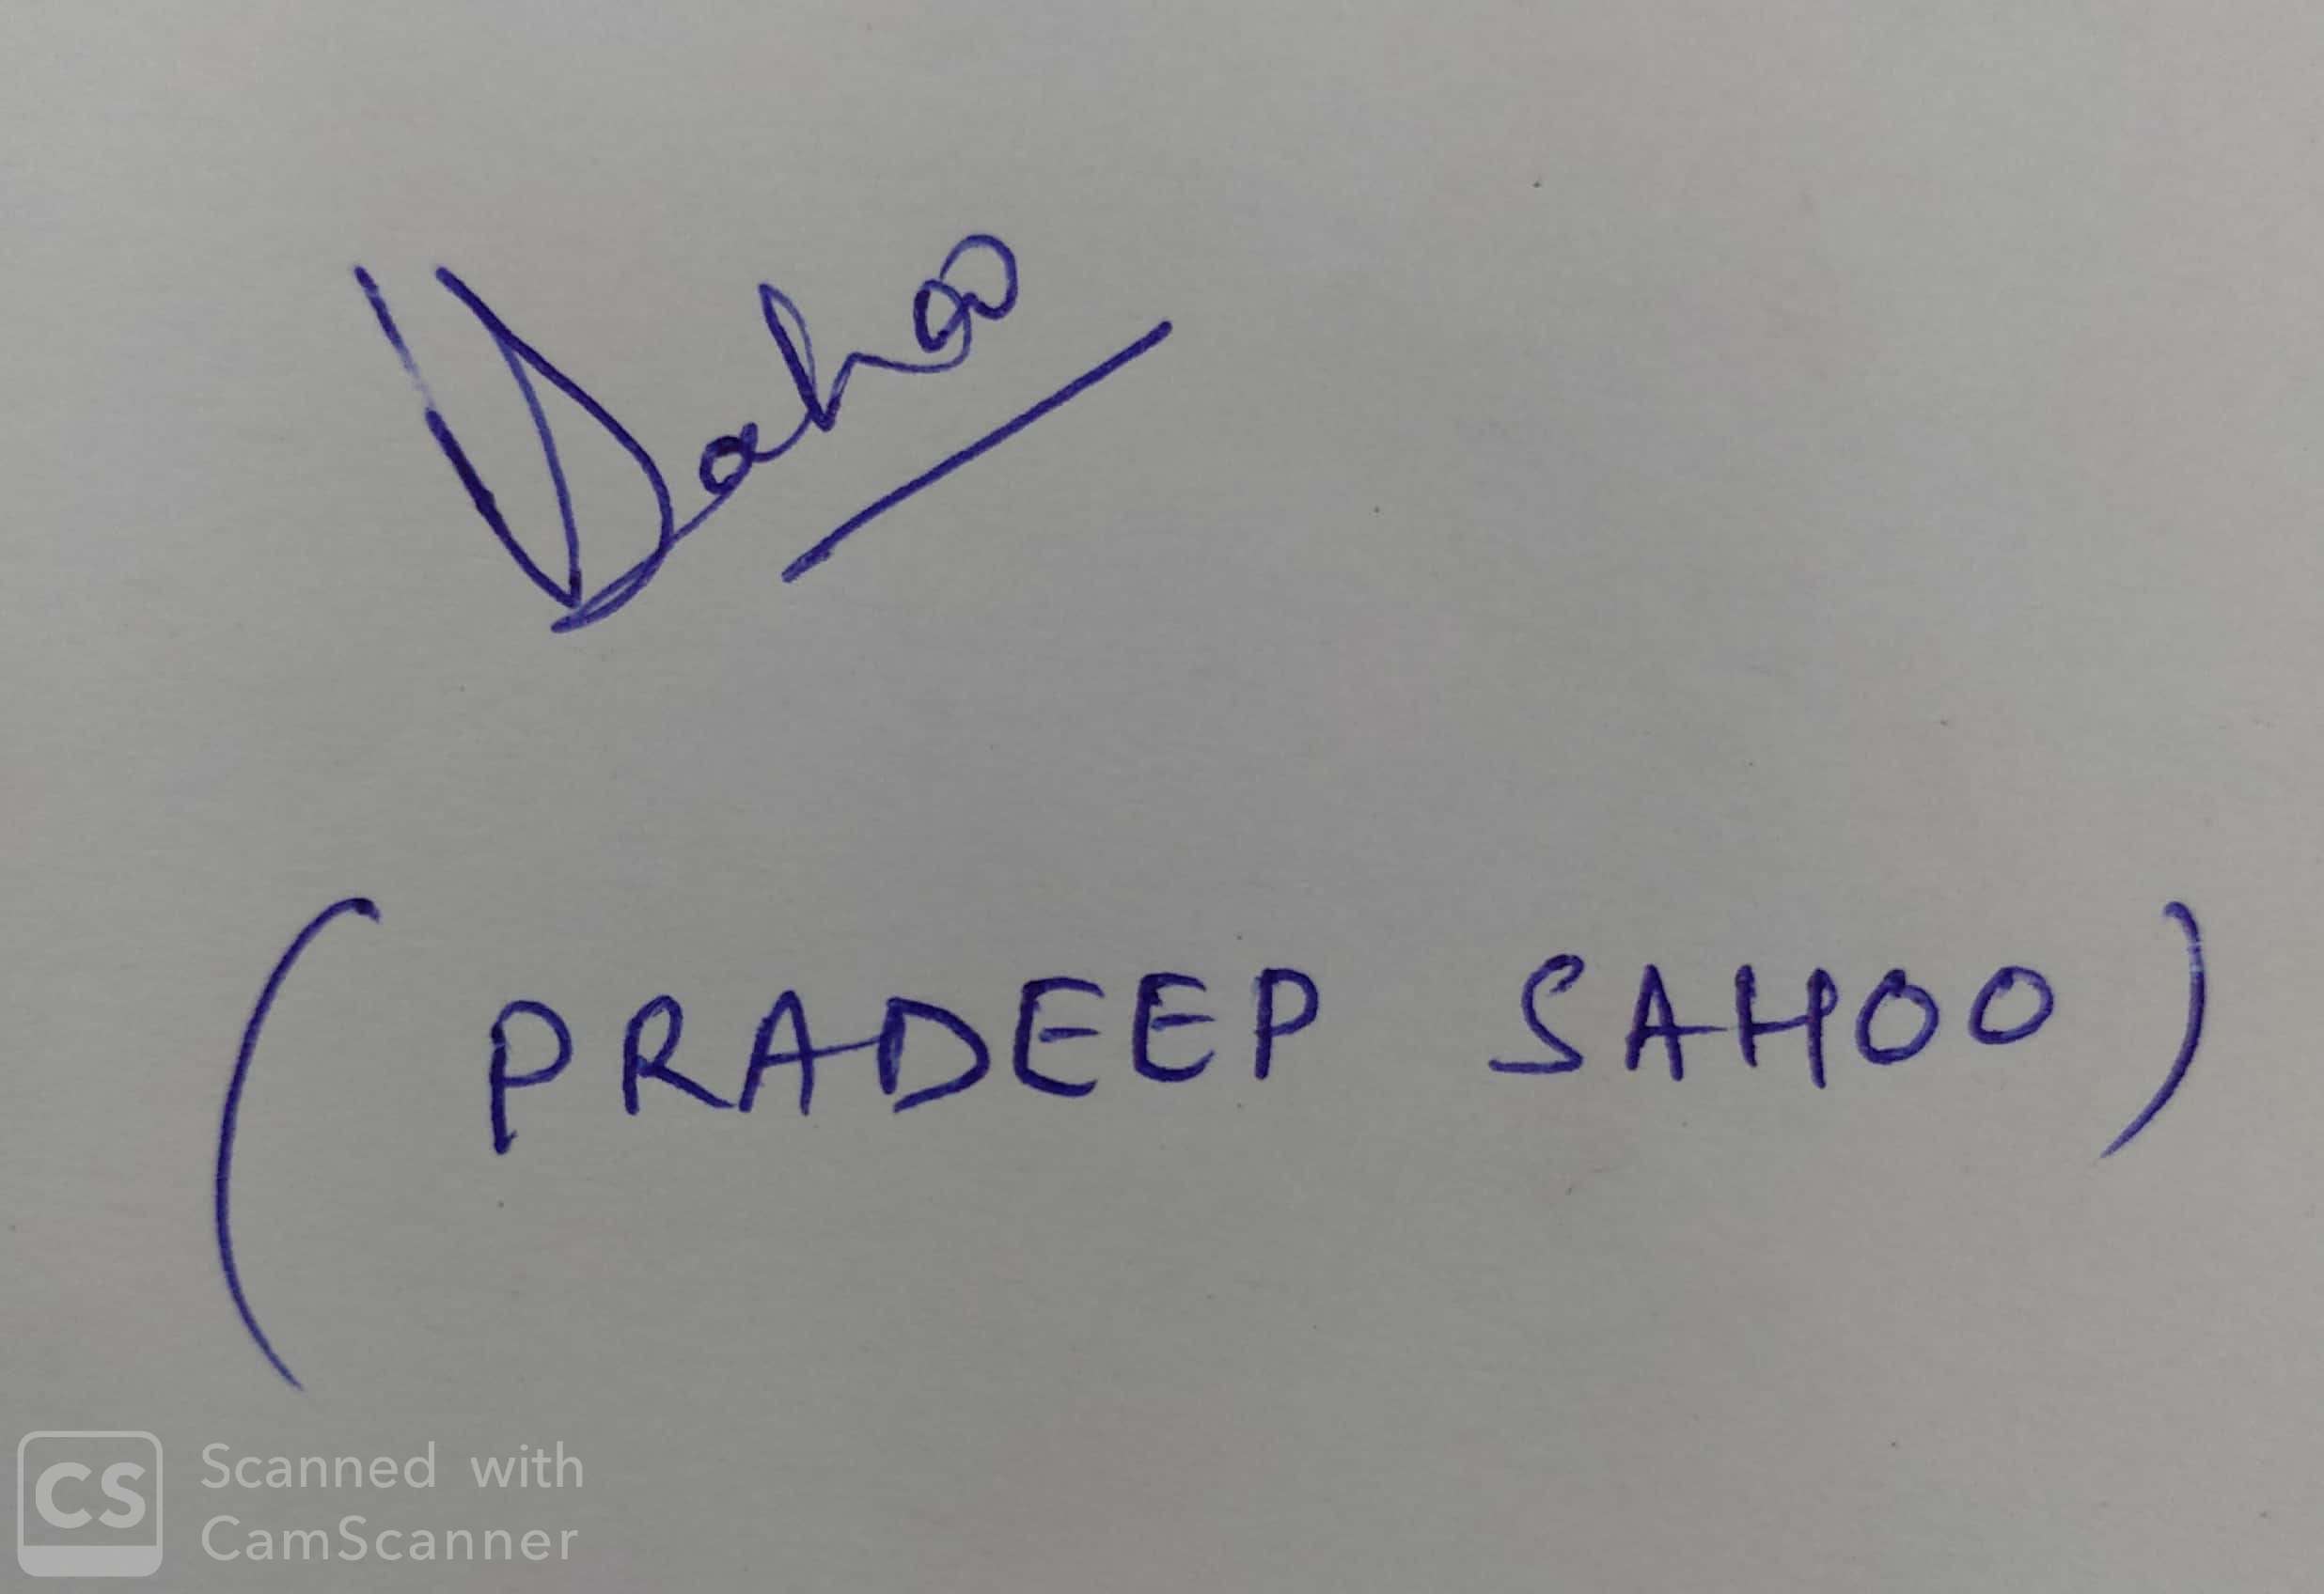 Sahoo
( PRADEEP SAHOO )
CS Scanned with
CamScanner